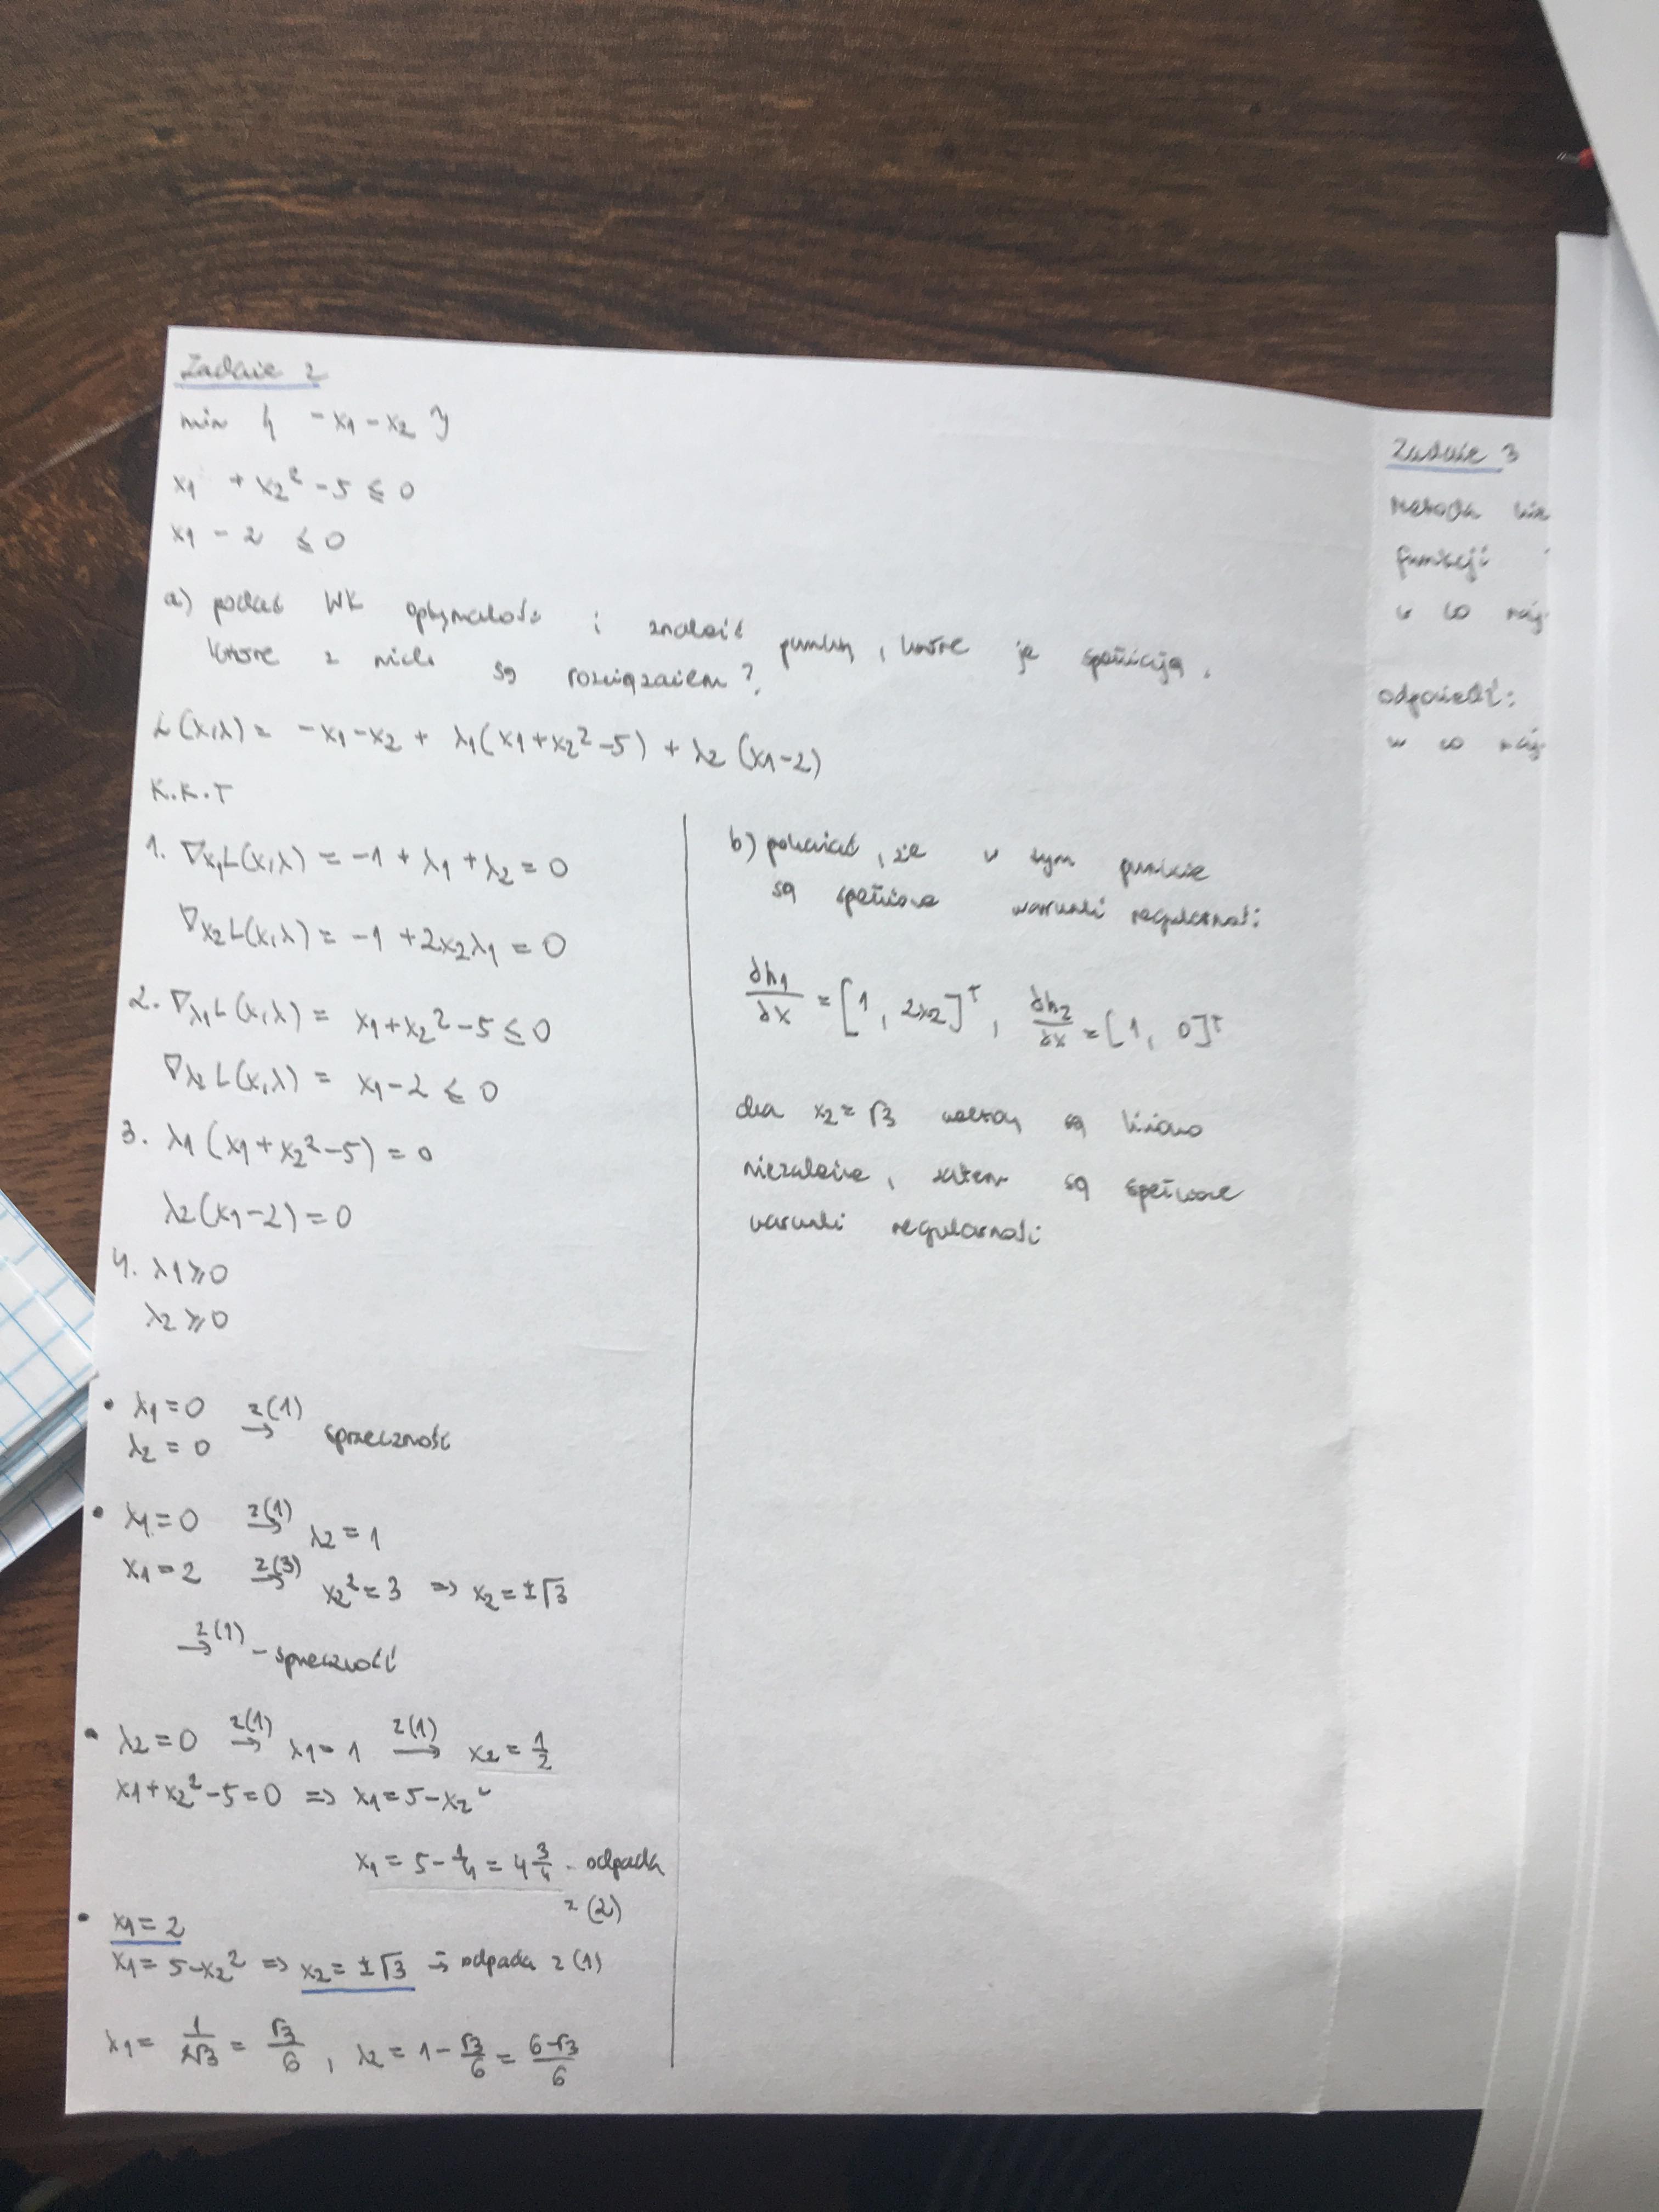 Zadanie 2
min { -x₁ - x₂ }
x₁ + x₂² - 5 ≤ 0
x₁ - 2 ≤ 0
a) podać WK optymalości i znaleźć punkty, które je spełniają.
które z nich są rozwiązaniem?
L(x,λ) = -x₁ - x₂ + λ₁(x₁+x₂²-5) + λ₂(x₁-2)
K.K.T
1. ∇x₁L(x,λ) = -1 + λ₁ + λ₂ = 0
∇x₂L(x,λ) = -1 + 2x₂λ₁ = 0
2. ∇λ₁L(x,λ) = x₁+x₂²-5 ≤ 0
∇λ₂L(x,λ) = x₁-2 ≤ 0
3. λ₁(x₁+x₂²-5) = 0
λ₂(x₁-2) = 0
4. λ₁ ≥ 0
λ₂ ≥ 0
• λ₁ = 0 z(1)→ sprzeczność
λ₂ = 0
• λ₁ = 0 z(1)→ λ₂ = 1
x₁ = 2 z(3)→ x₂² = 3 => x₂ = ±√3
z(1)→ - sprzeczność
• λ₂ = 0 z(1)→ λ₁ = 1 z(1)→ x₂ = 1/2
x₁+x₂²-5 = 0 => x₁ = 5-x₂²
x₁ = 5 - 1/4 = 4 3/4 - odpada
z (2)
• x₁ = 2
x₁ = 5-x₂² => x₂ = ±√3 → odpada z (1)
λ₁ = 1/2√3 = √3/6 , λ₂ = 1 - √3/6 = 6-√3/6
b) pokazać, że w tym punkcie
są spełnione warunki regularności
∂h₁/∂x = [1, 2x₂]ᵀ, ∂h₂/∂x = [1, 0]ᵀ
dla x₂ = √3 wektory są liniowo
niezależne, zatem są spełnione
warunki regularności
Zadanie 3
Metoda
funkcji
w co naj
odpowiedź:
w co naj